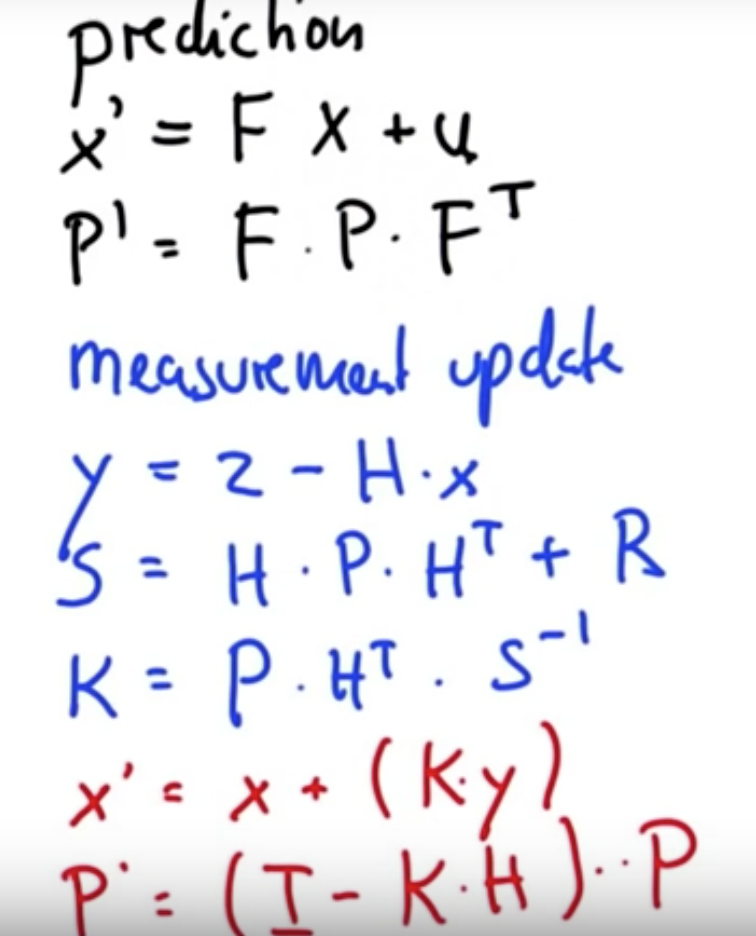 prediction
x' = F x + u
P' = F · P · Fᵀ
measurement update
y = z - H · x
S = H · P · Hᵀ + R
K = P · Hᵀ · S⁻¹
x' = x + (K · y)
P' = (I - K · H) · · P